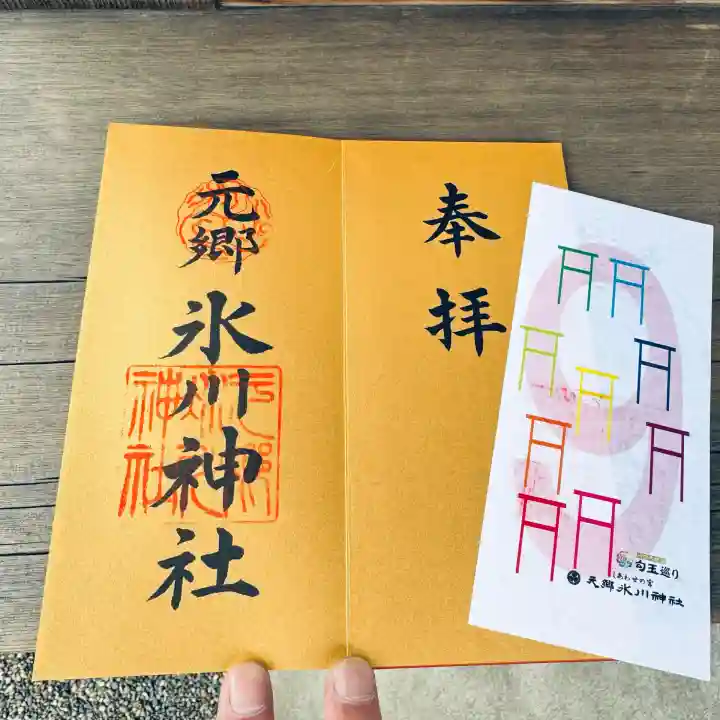 奉拝
元郷
氷川神社
元郷氷川神社
9
勾玉巡り
しあわせの宮
元郷氷川神社